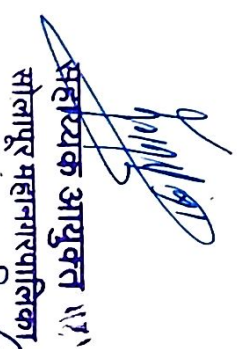 सहाय्यक आयुक्त
सोलापूर महानगरपालिका